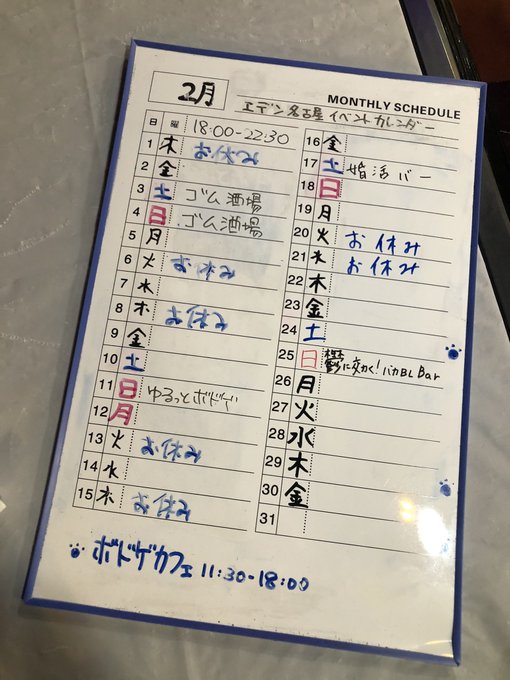 2月
MONTHLY SCHEDULE
エデン名古屋 イベントカレンダー
日 曜 18:00-22:30
1 木 お休み
2 金
3 土 ゴム酒場
4 日 ゴム酒場
5 月
6 火 お休み
7 水
8 木 お休み
9 金
10 土
11 日 ゆるっとボドゲ
12 月
13 火 お休み
14 水
15 木 お休み
16 金
17 土 婚活バー
18 日
19 月
20 火 お休み
21 水 お休み
22 木
23 金
24 土
25 日 鬱に効く!バカBL Bar
26 月
27 火
28 水
29 木
30 金
31
ボドゲカフェ 11:30-18:00